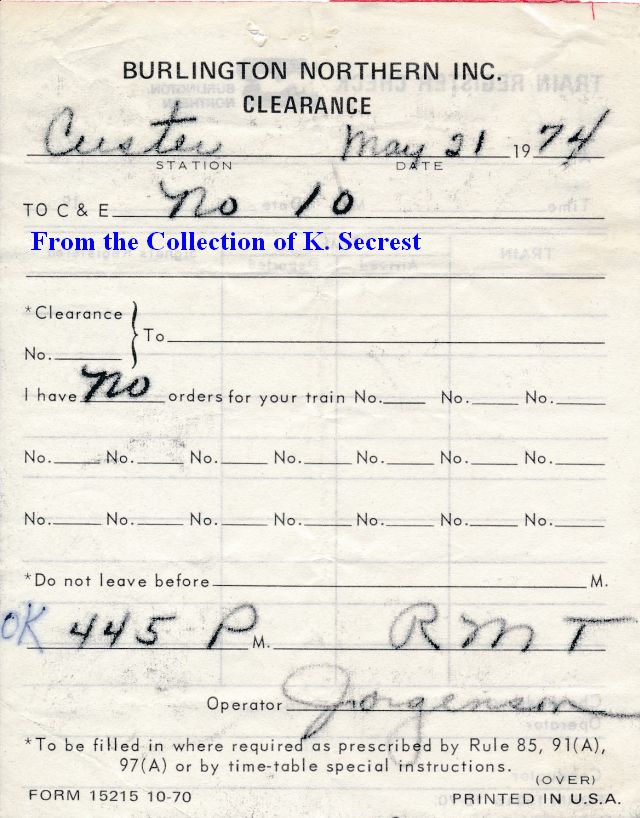 BURLINGTON NORTHERN INC.
CLEARANCE
Custer May 21 1974
STATION DATE
TO C & E No 10
From the Collection of K. Secrest
*Clearance
No. To
I have No orders for your train No. No. No.
No. No. No. No. No. No. No.
No. No. No. No. No. No. No.
*Do not leave before M.
OK 445 P M. RMT
Operator Jorgenson
*To be filled in where required as prescribed by Rule 85, 91(A),
97(A) or by time-table special instructions.
(OVER)
FORM 15215 10-70 PRINTED IN U.S.A.